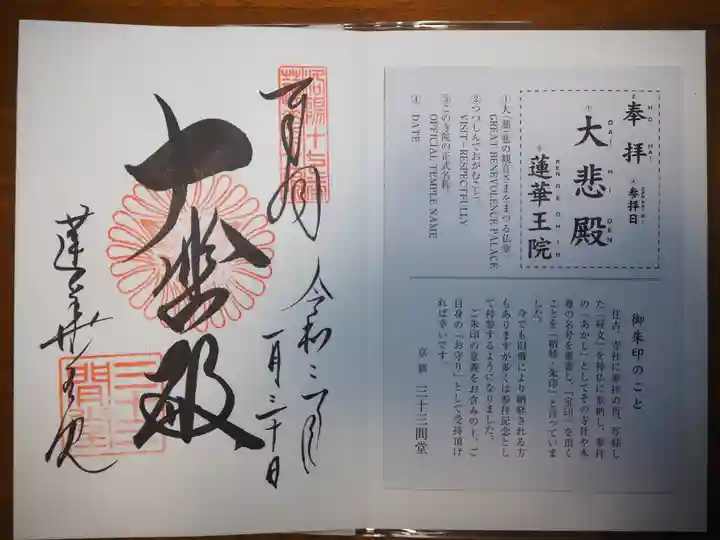 奉拝
HO HAI
④参拝日
SANPAIBI
①
大悲殿
DAI HI DEN
③
蓮華王院
RENGEOHIN
①大(慈)悲の観音さまをまつる仏堂
GREAT BENEVOLENCE PALACE
②つつしんでおがむこと
VISIT－RESPECTFULLY
③このお寺の正式名称
OFFICIAL TEMPLE NAME
④ DATE
御朱印のこと
往古、寺社に参拝の折、写経し
た「経文」を神仏に奉納し、参拝
の「あかし」としてその寺社や本
尊の名号を墨書し、「宝印」を頂く
ことを「納経・朱印」と言っていま
した。
今でも旧儀により納経される方
もありますが多くは参拝記念とし
て持参するようになりました。
ご朱印の意義をお含みの上、ご
自身の「お守り」として受持頂け
れば幸いです。
京都 三十三間堂
奉拝
令和二年
一月三十日
大悲殿
蓮華王院
三十三
間堂